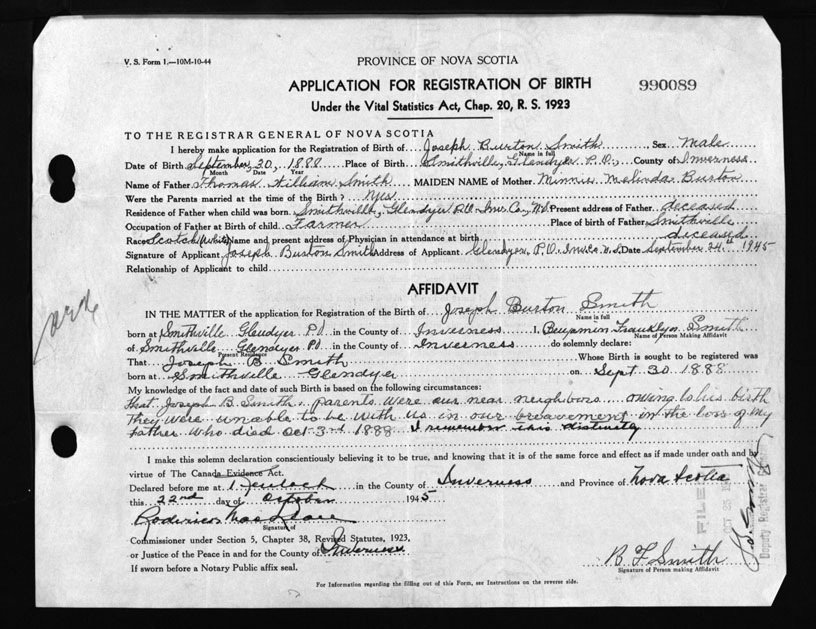 V. S. Form 1.—10M-10-44
PROVINCE OF NOVA SCOTIA
APPLICATION FOR REGISTRATION OF BIRTH
990089
Under the Vital Statistics Act, Chap. 20, R. S. 1923
TO THE REGISTRAR GENERAL OF NOVA SCOTIA
I hereby make application for the Registration of Birth of Joseph Burton Smith Sex Male
Name in full
Date of Birth September, 30, 1888 Place of Birth Smithville, Glendyer P.O., County of Inverness
Month Date Year
Name of Father Thomas William Smith MAIDEN NAME of Mother Minnie Melinda Burton
Were the Parents married at the time of the Birth? Yes
Residence of Father when child was born Smithville, Glendyer P.O. Inv. Co., N.S. Present address of Father deceased
Occupation of Father at Birth of child Farmer Place of birth of Father Smithville
Race Scotch (White) Name and present address of Physician in attendance at birth deceased
Signature of Applicant Joseph Burton Smith Address of Applicant Glendyer, P.O. Inv. Co. N.S. Date September 24th 1945
Relationship of Applicant to child
AFFIDAVIT
IN THE MATTER of the application for Registration of the Birth of Joseph Burton Smith
Name in full
born at Smithville Glendyer P.O in the County of Inverness I, Benjamin Franklyn Smith
Name of Person Making Affidavit
of Smithville Glendyer P.O in the County of Inverness do solemnly declare:
Present Residence
That Joseph B Smith Whose Birth is sought to be registered was
born at Smithville Glendyer on Sept 30 1888
My knowledge of the fact and date of such Birth is based on the following circumstances:
that Joseph B. Smith's parents were our near neighbors owing to his birth
they were unable to be with us in our breavement in the loss of my
Father who died Oct 3rd 1888 I remember this distinctly
I make this solemn declaration conscientiously believing it to be true, and knowing that it is of the same force and effect as if made under oath and by
virtue of The Canada Evidence Act.
Declared before me at in the County of Inverness and Province of Nova Scotia
this 22nd day of October 1945
Signature of
Commissioner under Section 5, Chapter 38, Revised Statutes, 1923,
or Justice of the Peace in and for the County of Inverness
If sworn before a Notary Public affix seal.
B F Smith
Signature of Person making Affidavit
FILED
Deputy Registrar
For Information regarding the filling out of this Form, see Instructions on the reverse side.